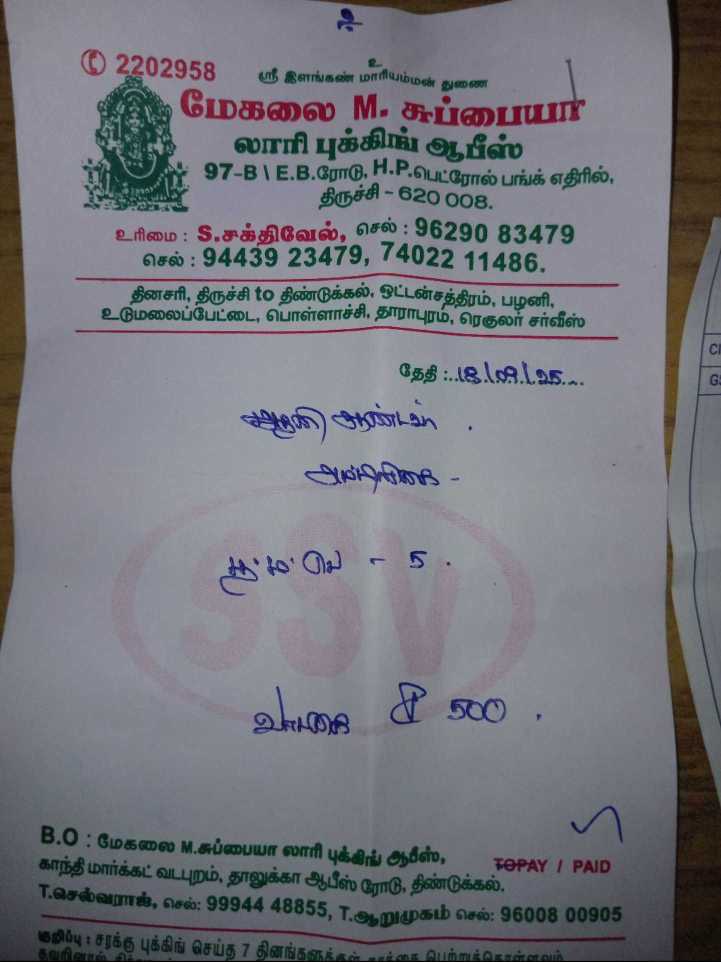 உ
✆ 2202958
உ
ஸ்ரீ இளங்கண் மாரியம்மன் துணை
மேகலை M. சுப்பையா
லாரி புக்கிங் ஆபீஸ்
97-B \ E.B.ரோடு, H.P.பெட்ரோல் பங்க் எதிரில்,
திருச்சி - 620 008.
உரிமை : S.சக்திவேல், செல் : 96290 83479
செல் : 94439 23479, 74022 11486.
தினசரி, திருச்சி to திண்டுக்கல், ஒட்டன்சத்திரம், பழனி,
உடுமலைப்பேட்டை, பொள்ளாச்சி, தாராபுரம், ரெகுலர் சர்வீஸ்
தேதி : 18/09/25
ஆண்டவர்
SSV
பெ - 5
வாடகை 500
B.O : மேகலை M.சுப்பையா லாரி புக்கிங் ஆபீஸ்,
TOPAY / PAID
காந்தி மார்க்கட் வடபுறம், தாலுக்கா ஆபீஸ் ரோடு, திண்டுக்கல்.
T.செல்வராஜ், செல்: 99944 48855, T.ஆறுமுகம் செல்: 96008 00905
குறிப்பு : சரக்கு புக்கிங் செய்த 7 தினங்களுக்குள்